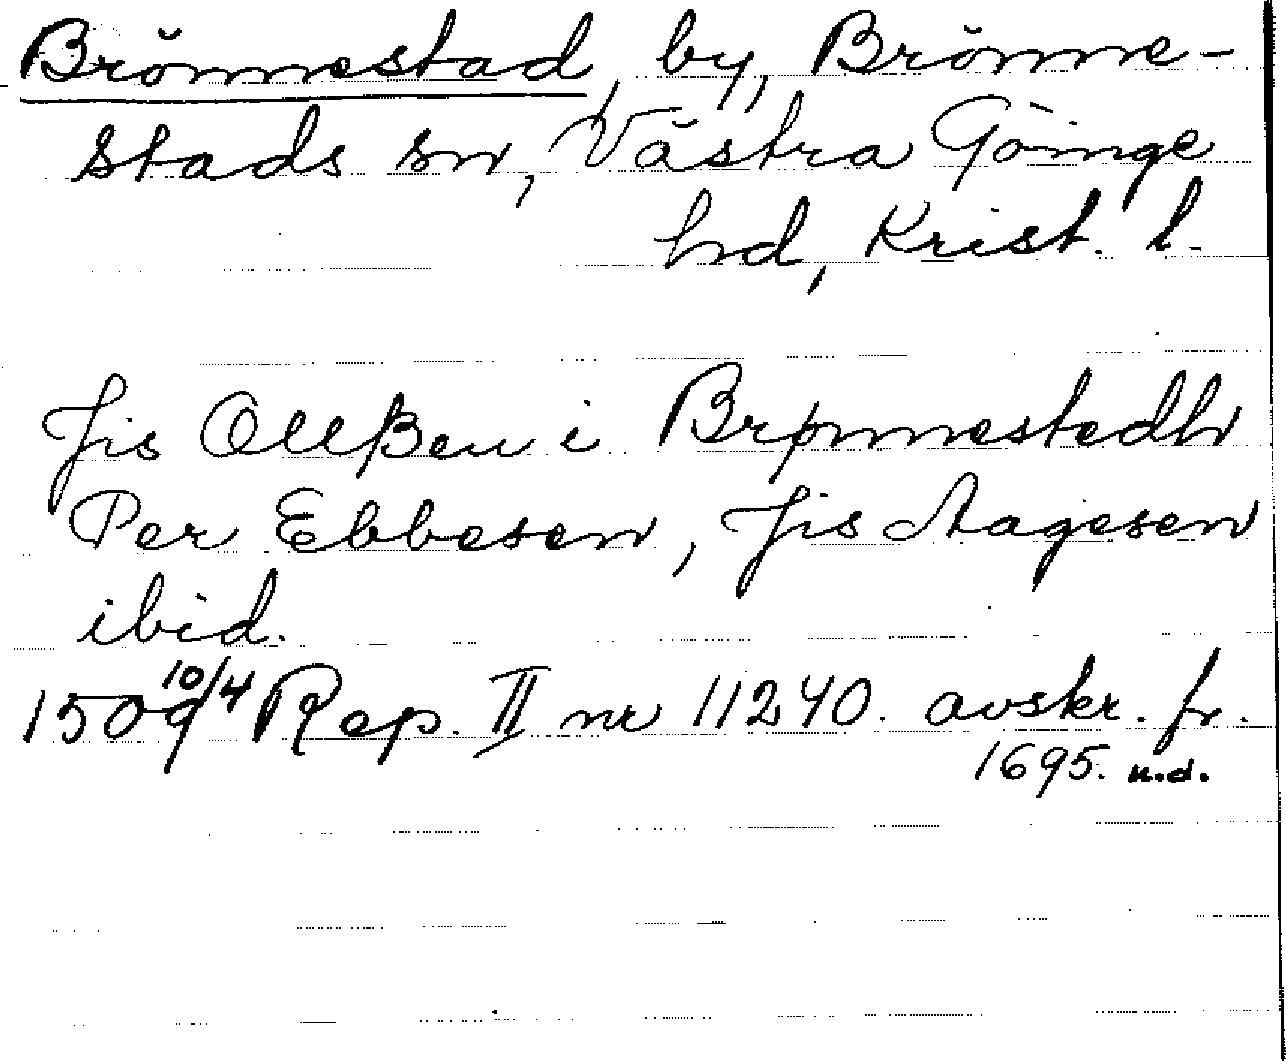 Brönnestad, by, Brönne-
stads sn, Västra Göinge
hd, Krist. l.
Jis Ollßen i Brønnestedh
Per Ebbesen, Jis Aagesen
ibid.
1509 10/4 Rep. II nr 11240. avskr. fr.
1695. u.d.